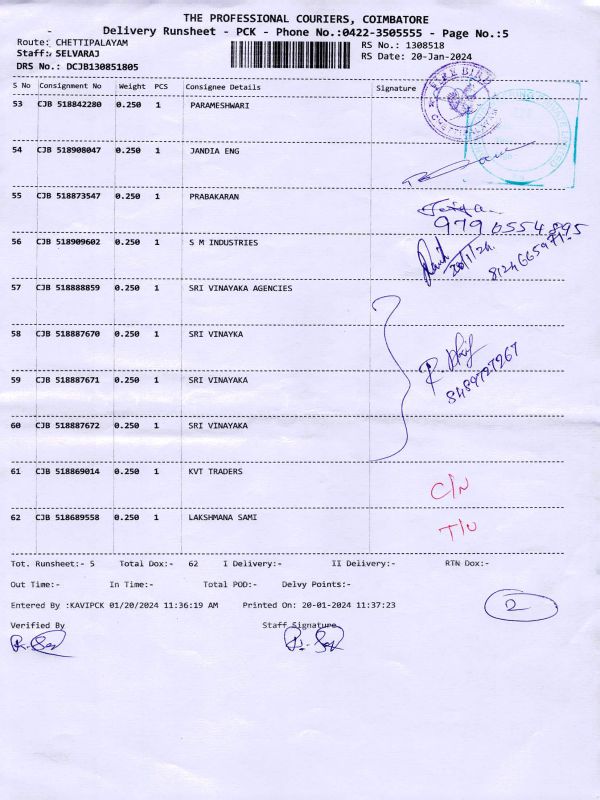 THE PROFESSIONAL COURIERS, COIMBATORE
Delivery Runsheet - PCK - Phone No.:0422-3505555 - Page No.:5
Route: CHETTIPALAYAM RS No.: 1308518
Staff: SELVARAJ RS Date: 20-Jan-2024
DRS No.: DCJB130851805
S No Consignment No Weight PCS Consignee Details Signature
53 CJB 518842280 0.250 1 PARAMESHWARI
54 CJB 518908047 0.250 1 JANDIA ENG
55 CJB 518873547 0.250 1 PRABAKARAN
9790554895
56 CJB 518909602 0.250 1 S M INDUSTRIES
20/1/24
57 CJB 518888859 0.250 1 SRI VINAYAKA AGENCIES
58 CJB 518887670 0.250 1 SRI VINAYKA
59 CJB 518887671 0.250 1 SRI VINAYAKA
8489727267
60 CJB 518887672 0.250 1 SRI VINAYAKA
61 CJB 518869014 0.250 1 KVT TRADERS
C/N
62 CJB 518689558 0.250 1 LAKSHMANA SAMI
T/N
Tot. Runsheet:- 5 Total Dox:- 62 I Delivery:- II Delivery:- RTN Dox:-
Out Time:- In Time:- Total POD:- Delvy Points:-
Entered By :KAVIPCK 01/20/2024 11:36:19 AM Printed On: 20-01-2024 11:37:23
2
Verified By Staff Signature